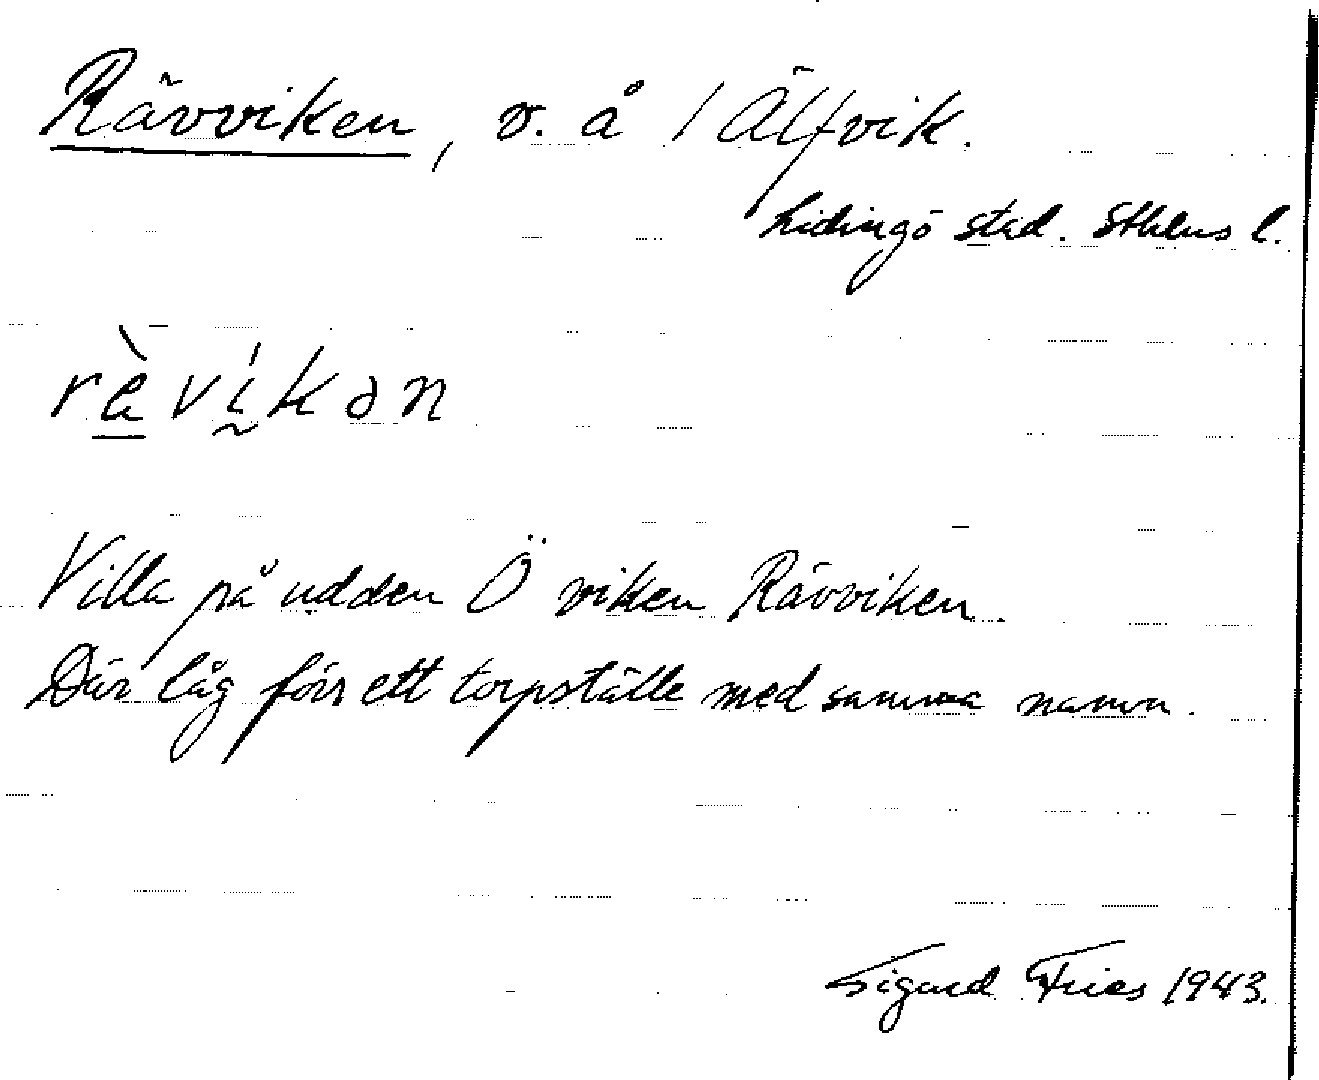 Rävviken, v. å / Älfvik.
Lidingö stad. Sthlms l.
rὲvíkən
Villa på udden Ö viken Rävviken.
Där låg förr ett torpställe med samma namn.
Sigurd Fries 1943.